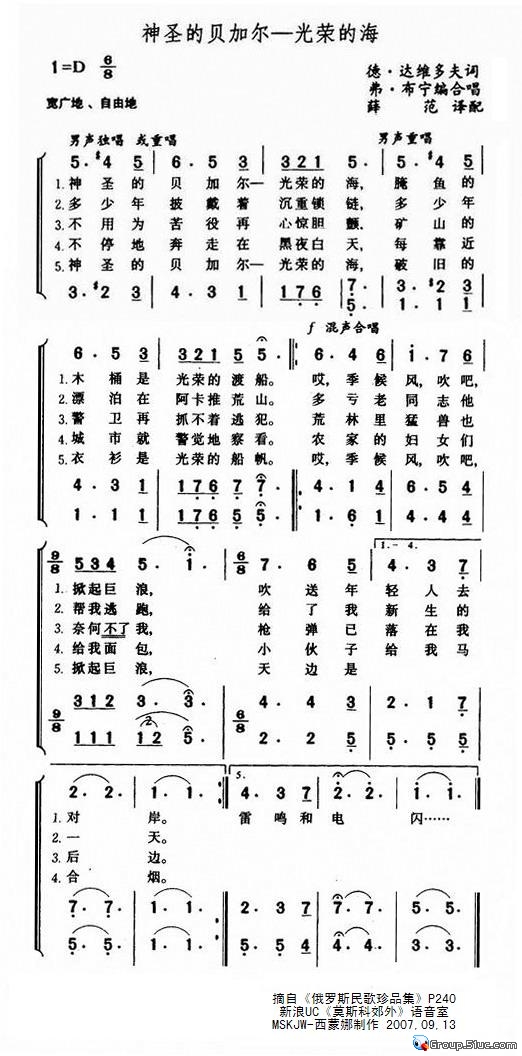 神圣的贝加尔—光荣的海
1=D 6/8
德·达维多夫词
弗·布宁编合唱
薛 范 译配
宽广地、自由地
男声独唱 或重唱
男声重唱
5 · #4 5 | 6 · 5 3 | 3 2 1 5 · 5 · | 5 · #4 5
1.神圣的 贝加尔— 光荣的海, 腌鱼的
2.多少年 披戴着 沉重锁链, 多少年
3.不用为 苦役再 心惊胆颤, 矿山的
4.不停地 奔走在 黑夜白天, 每靠近
5.神圣的 贝加尔— 光荣的海, 破旧的
3 · #2 3 | 4 · 3 1 | 1 7 6
f 混声合唱
6 · 5 3 | 3 2 1 5 · 5 · | 6 · 4 6 | 1 · 7 6
1.木桶是 光荣的渡船。 哎,季候风,吹吧,
2.漂泊在 阿卡推荒山。 多亏老同志他
3.警卫再 抓不着逃犯。 荒林里猛兽也
4.城市就 警觉地察看。 农家的妇女们
5.衣衫是 光荣的船帆。 哎,季候风,吹吧,
4 · 3 1 | 1 7 6 7 · 7 · | 4 · 1 4 | 6 · 5 4
1 · 1 1 | 1 7 6 5 · 5 · | 1 · 6 1 | 4 · 3 2
9/8 5 3 4 5 · 1 · | 6/8 7 · 6 5 | 1.-4. 4 · 3 7
1.掀起巨浪, 吹送年轻人去
2.帮我逃跑, 给了我新生的
3.奈何不了我, 枪弹已落在我
4.给我面包, 小伙子给我马
5.掀起巨浪, 天边是
9/8 3 1 2 3 · 3 · | 6/8 4 · 4 3 | 2 · 1 7
1 1 1 1 2 5 · | 2 · 2 5 | 5 · 5 5
2 · 2 · | 1 · 1 · | 5. 4 · 3 7 | 2 · 2 · | 1 · 1 ·
1.对岸。 雷鸣和电闪……
2.一天。
3.后边。
4.合烟。
7 · 7 · | 1 · 1 · | 2 · 3 7 | 7 · 7 · | 1 · 1 ·
5 · 5 · | 1 · 1 · | 2 · 3 7 | 5 · 5 · | 1 · 1 ·
摘自《俄罗斯民歌珍品集》P240
新浪UC《莫斯科郊外》语音室
MSKJW-西蒙娜制作 2007.09.13
Group.51uc.com